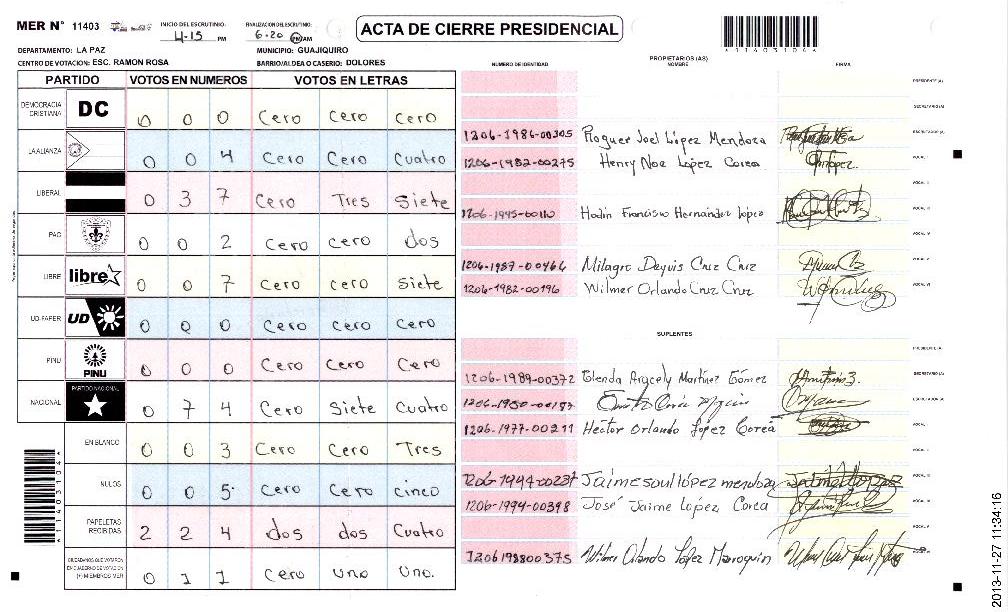 MER N° 11403
INICIO DEL ESCRUTINIO: 4-15 PM
FINALIZACION DEL ESCRUTINIO: 6-20 PM/AM
ACTA DE CIERRE PRESIDENCIAL
*11403104*
DEPARTAMENTO: LA PAZ
MUNICIPIO: GUAJIQUIRO
CENTRO DE VOTACION: ESC. RAMON ROSA
BARRIO/ALDEA O CASERIO: DOLORES
PARTIDO VOTOS EN NUMEROS VOTOS EN LETRAS
DEMOCRACIA CRISTIANA DC 0 0 0 Cero Cero Cero
LA ALIANZA 0 0 4 Cero Cero Cuatro
LIBERAL 0 3 7 Cero Tres Siete
PAC 0 0 2 Cero cero dos
LIBRE libre 0 0 7 Cero cero Siete
UD-FAPER UD 0 0 0 Cero Cero Cero
PINU PINU 0 0 0 Cero Cero Cero
NACIONAL PARTIDO NACIONAL 0 7 4 Cero Siete Cuatro
EN BLANCO 0 0 3 Cero Cero Tres
NULOS 0 0 5 Cero Cero cinco
PAPELETAS RECIBIDAS 2 2 4 dos dos Cuatro
CIUDADANOS QUE VOTARON EN CUADERNO DE VOTACION (+) MIEMBROS MER 0 1 1 Cero uno uno.
*11403104*
NUMERO DE IDENTIDAD
PROPIETARIOS (AS)
NOMBRE
FIRMA
PRESIDENTE (A)
SECRETARIO (A)
1206-1986-00305 Roguer Joel López Mendoza ESCRUTADOR (A)
1206-1982-00275 Henry Noe López Corea VOCAL I
VOCAL II
1206-1995-00110 Hodin Francisco Hernández López VOCAL III
VOCAL IV
1206-1987-00466 Milagro Deyuis Cruz Cruz VOCAL V
1206-1982-00196 Wilmer Orlando Cruz Cruz VOCAL VI
SUPLENTES
PRESIDENTE (A)
1206-1989-00372 Glenda Aracely Martínez Gómez SECRETARIO (A)
ESCRUTADOR (A)
1206-1977-00211 Héctor Orlando López Corea VOCAL I
Jaime soul lópez mendoza
1206-1994-00398 José Jaime López Corea
1206198800375 Wilmer Orlando López Marroquin
2013-11-27 11:34:16